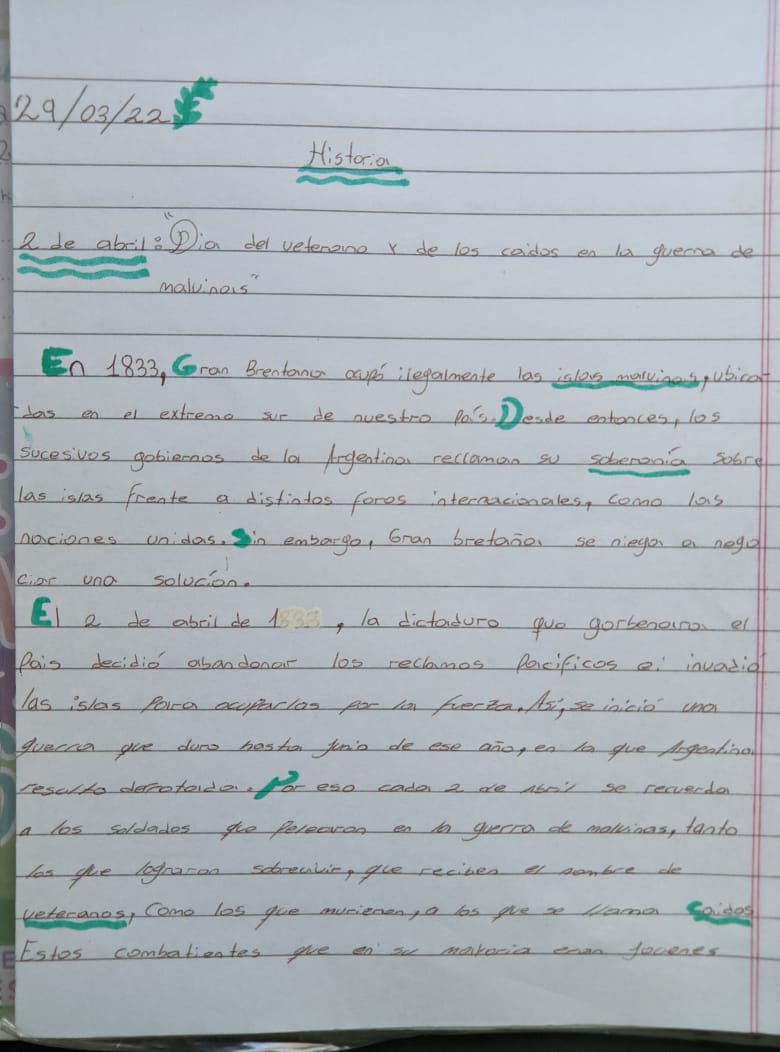 29/03/22
Historia
2 de abril: "Dia del veterano y de los caidos en la guerra de
malvinas"
En 1833, Gran Brentana ocupó ilegalmente las islas malvinas, ubica
das en el extremo sur de nuestro País. Desde entonces, los
sucesivos gobiernos de la Argentina reclaman su soberanía sobre
las islas frente a distintos foros internacionales, como las
naciones unidas. Sin embargo, Gran bretaña se niega a nego
ciar una solución.
El 2 de abril de 1833, la dictadura que gorbenara el
País decidió abandonar los reclamos Pacificos e invadió
las islas Para ocuparlas por la fuerza. Así, se inició una
guerra que duro hasta junio de ese año, en la que Argentina
resulto derrotada. Por eso cada 2 de Abril se recuerda
a los soldados que Pelearon en la guerra de malvinas, tanto
los que lograron sobrevivir, que reciben el nombre de
veteranos, Como los que murieron, a los que se llama Caidos
Estos combatientes que en su mayoria eran Jovenes